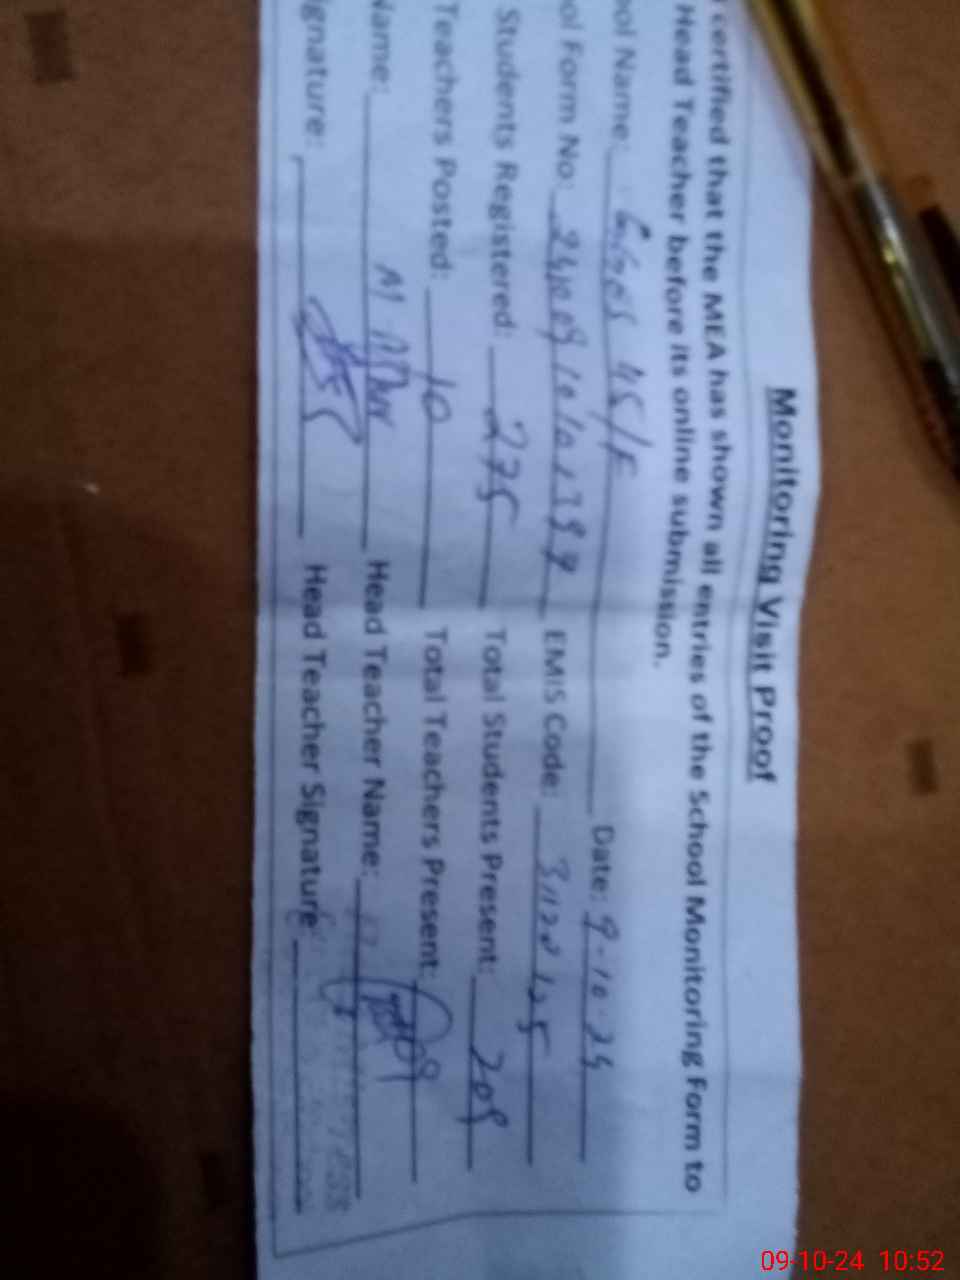 Monitoring Visit Proof
certified that the MEA has shown all entries of the School Monitoring Form to
Head Teacher before its online submission.
ool Name: GGES 45/F Date: 9-10-24
ol Form No: EMIS Code:
Students Registered: 275 Total Students Present: 208
Teachers Posted: 10 Total Teachers Present: 09
Name: Head Teacher Name:
ignature: Head Teacher Signature
09-10-24 10:52